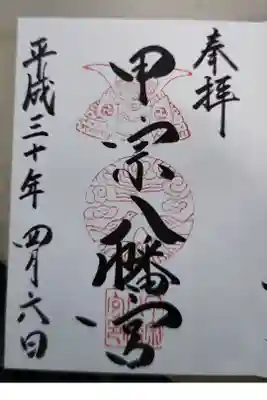 奉拝
甲宗八幡宮
平成三十年四月六日